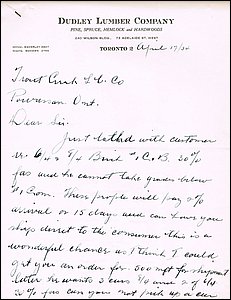 DUDLEY LUMBER COMPANY
PINE, SPRUCE, HEMLOCK and HARDWOODS
TORONTO 2 April 17/34
Trout Creek L Co
Powassan Ont.
Dear Sir:
Just talked with customer
re 6/4 & 8/4 Birch 1 C. & B. 20%
fas and he cannot take grades below
1 Com. These people will pay 2%
arrival or 15 days and can have you
ship direct to the consumer this is a
wonderful chance as I think I could
get you an order for 300 mft for shipment
later he wants 2 cars 6/4 and 2 8/4
20% fas can you not pick up a car